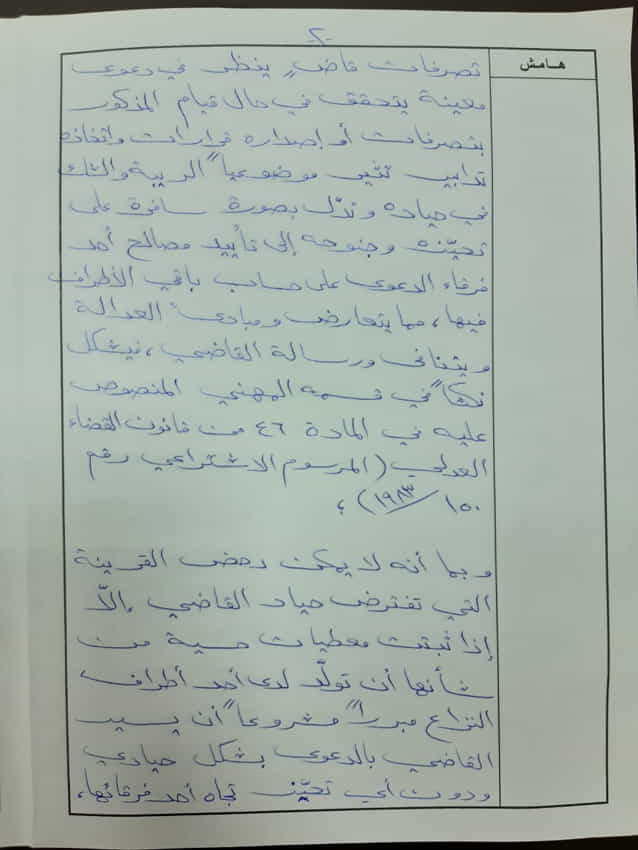 -٢-
هامش
تصرفات قاضٍ ينظر في دعوى
معينة يتحقق في حال قيام المذكور
بتصرفات أو إصداره قرارات واتخاذه
تدابير تثير موضوعياً الريبة والشك
في حياده وتدلّ بصورة سافرة على
تحيّزه وجنوحه إلى تأييد مصالح أحد
فرقاء الدعوى على حساب باقي الأطراف
فيها، مما يتعارض ومبادئ العدالة
ويتنافى ورسالة القاضي، فيشكل
نكثاً في قسمه المهني المنصوص
عليه في المادة ٤٦ من قانون القضاء
العدلي (المرسوم الاشتراعي رقم
١٥٠/١٩٨٣)؛
وبما أنه لا يمكن دحض القرينة
التي تفترض حياد القاضي إلاّ
إذا ثبتت معطيات حسية من
شأنها أن تولّد لدى أحد أطراف
النزاع مبرراً مشروعاً أن يسير
القاضي بالدعوى بشكل حيادي
ودون أي تحيّز تجاه أحد فرقائها،